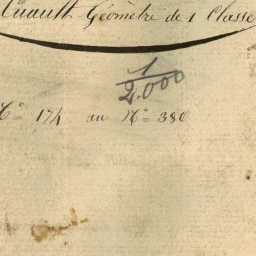 Géomètre de 1 Classe
1
2.000
N° 174 au N° 380